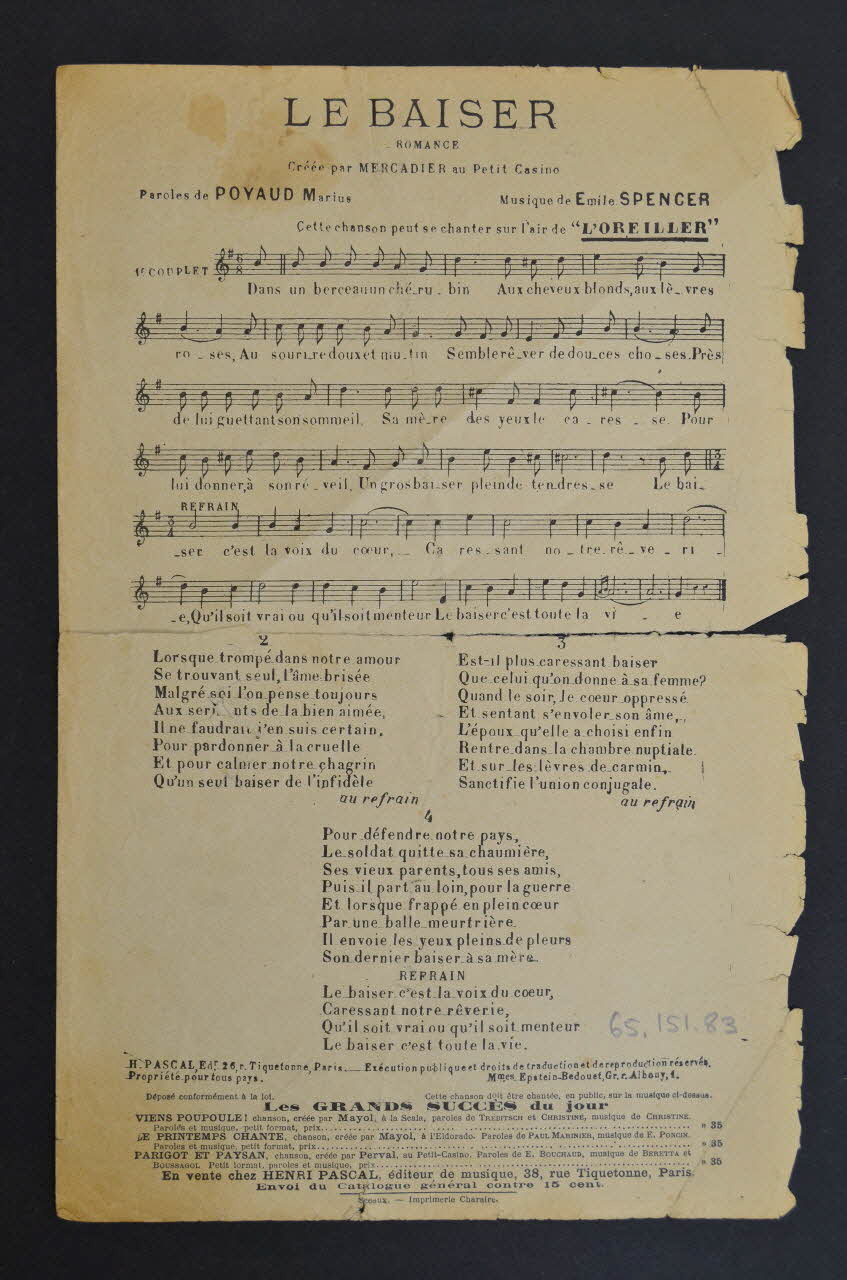 LE BAISER
ROMANCE
Créée par MERCADIER au Petit Casino
Paroles de POYAUD Marius
Musique de Emile SPENCER
Cette chanson peut se chanter sur l'air de "L'OREILLER"
1r COUPLET
Dans un berceau un ché_ru_bin Aux cheveux blonds, aux lè_vres
ro_ses, Au souri_re doux et mu_tin Semble rê_ver de dou_ces cho_ses. Près
de lui guettant son sommeil, Sa mè_re des yeux le ca_res_se. Pour
lui donner, à son ré_veil, Un gros bai_ser plein de ten_dres_se Le bai_
REFRAIN
_ser c'est la voix du cœur,_ Ca_res_sant no_tre rê_ve_ri_
_e, Qu'il soit vrai ou qu'il soit menteur Le baiser c'est toute la vi_e
2
Lorsque trompé dans notre amour
Se trouvant seul, l'âme brisée
Malgré soi l'on pense toujours
Aux ser nts de la bien aimée,
Il ne faudrait j'en suis certain,
Pour pardonner à la cruelle
Et pour calmer notre chagrin
Qu'un seul baiser de l'infidèle
au refrain
3
Est-il plus caressant baiser
Que celui qu'on donne à sa femme?
Quand le soir, le coeur oppressé
Et sentant s'envoler son âme,
L'époux qu'elle a choisi enfin
Rentre dans la chambre nuptiale.
Et sur les lèvres de carmin,
Sanctifie l'union conjugale.
au refrain
4
Pour défendre notre pays,
Le soldat quitte sa chaumière,
Ses vieux parents, tous ses amis,
Puis il part au loin, pour la guerre
Et lorsque frappé en plein cœur
Par une balle meurtrière
Il envoie les yeux pleins de pleurs
Son dernier baiser à sa mère.
REFRAIN
Le baiser c'est la voix du coeur,
Caressant notre rêverie,
Qu'il soit vrai ou qu'il soit menteur
Le baiser c'est toute la vie.
65.151.83
H. PASCAL, Edr. 26, r. Tiquetonne, Paris.__ Exécution publique et droits de traduction et de reproduction réservés.
Propriété pour tous pays. Mmes. Epstein-Bedouet, Gr. r. Albouy, 1.
Déposé conformément à la loi. Cette chanson doit être chantée, en public, sur la musique ci-dessus.
Les GRANDS SUCCÈS du jour
VIENS POUPOULE! chanson, créée par Mayol, à la Scala, paroles de TREBITSCH et CHRISTINÉ, musique de CHRISTINÉ.
Paroles et musique, petit format, prix.......... » 35
LE PRINTEMPS CHANTE, chanson, créée par Mayol, à l'Eldorado. Paroles de PAUL MARINIER, musique de E. PONCIN.
Paroles et musique, petit format, prix.......... » 35
PARIGOT ET PAYSAN, chanson, créée par Perval, au Petit-Casino. Paroles de E. BOUCHAUD, musique de BERETTA et
BOUSSAGOL. Petit format, paroles et musique, prix.......... » 35
En vente chez HENRI PASCAL, éditeur de musique, 38, rue Tiquetonne, Paris.
Envoi du Catalogue général contre 15 cent.
Sceaux. — Imprimerie Charaire.